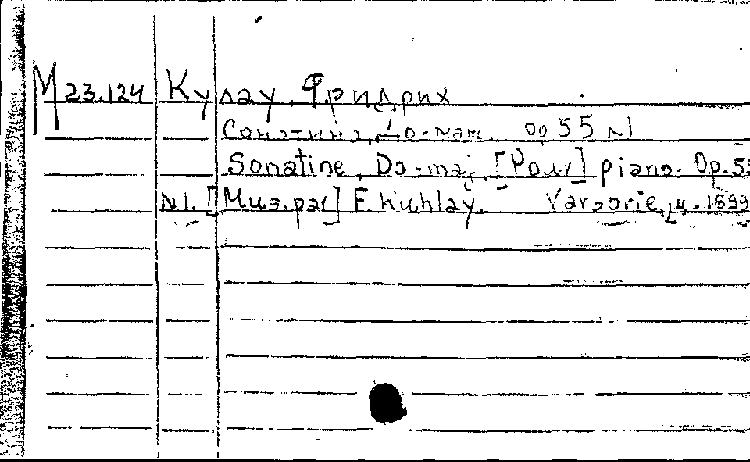 M 23.124 Кулау, Фридрих
Сонатина, До-маж. Op 55 N1
Sonatine, Do-maj. [Pour] piano. Op. 5
N1. [Муз.рас] F. Kuhlay. Varsovie, 1899